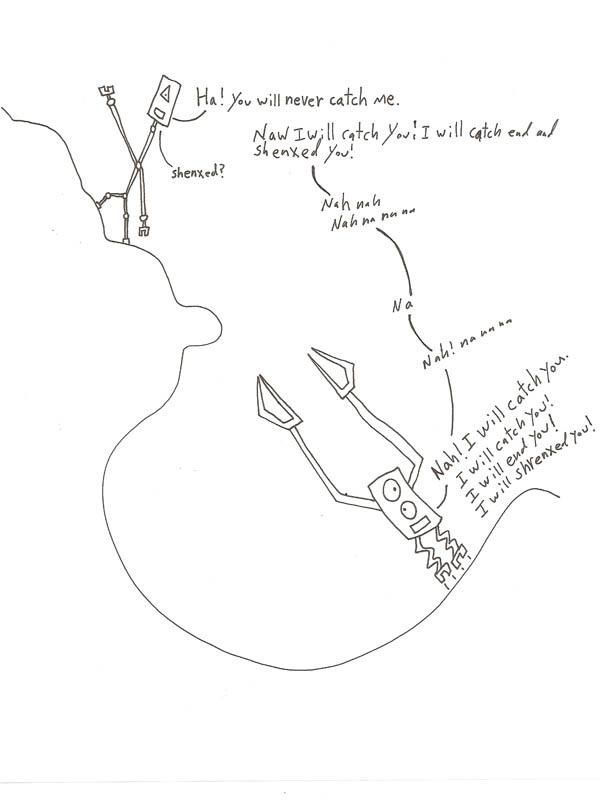 Ha! You will never catch me.
Naw I will catch You! I will catch end and
shenxed You!
shenxed?
Nah nah
Nah na na na
Na
Nah! na na na
Nah! I will catch you.
I will catch You!
I will end You!
I will shrenxed You!